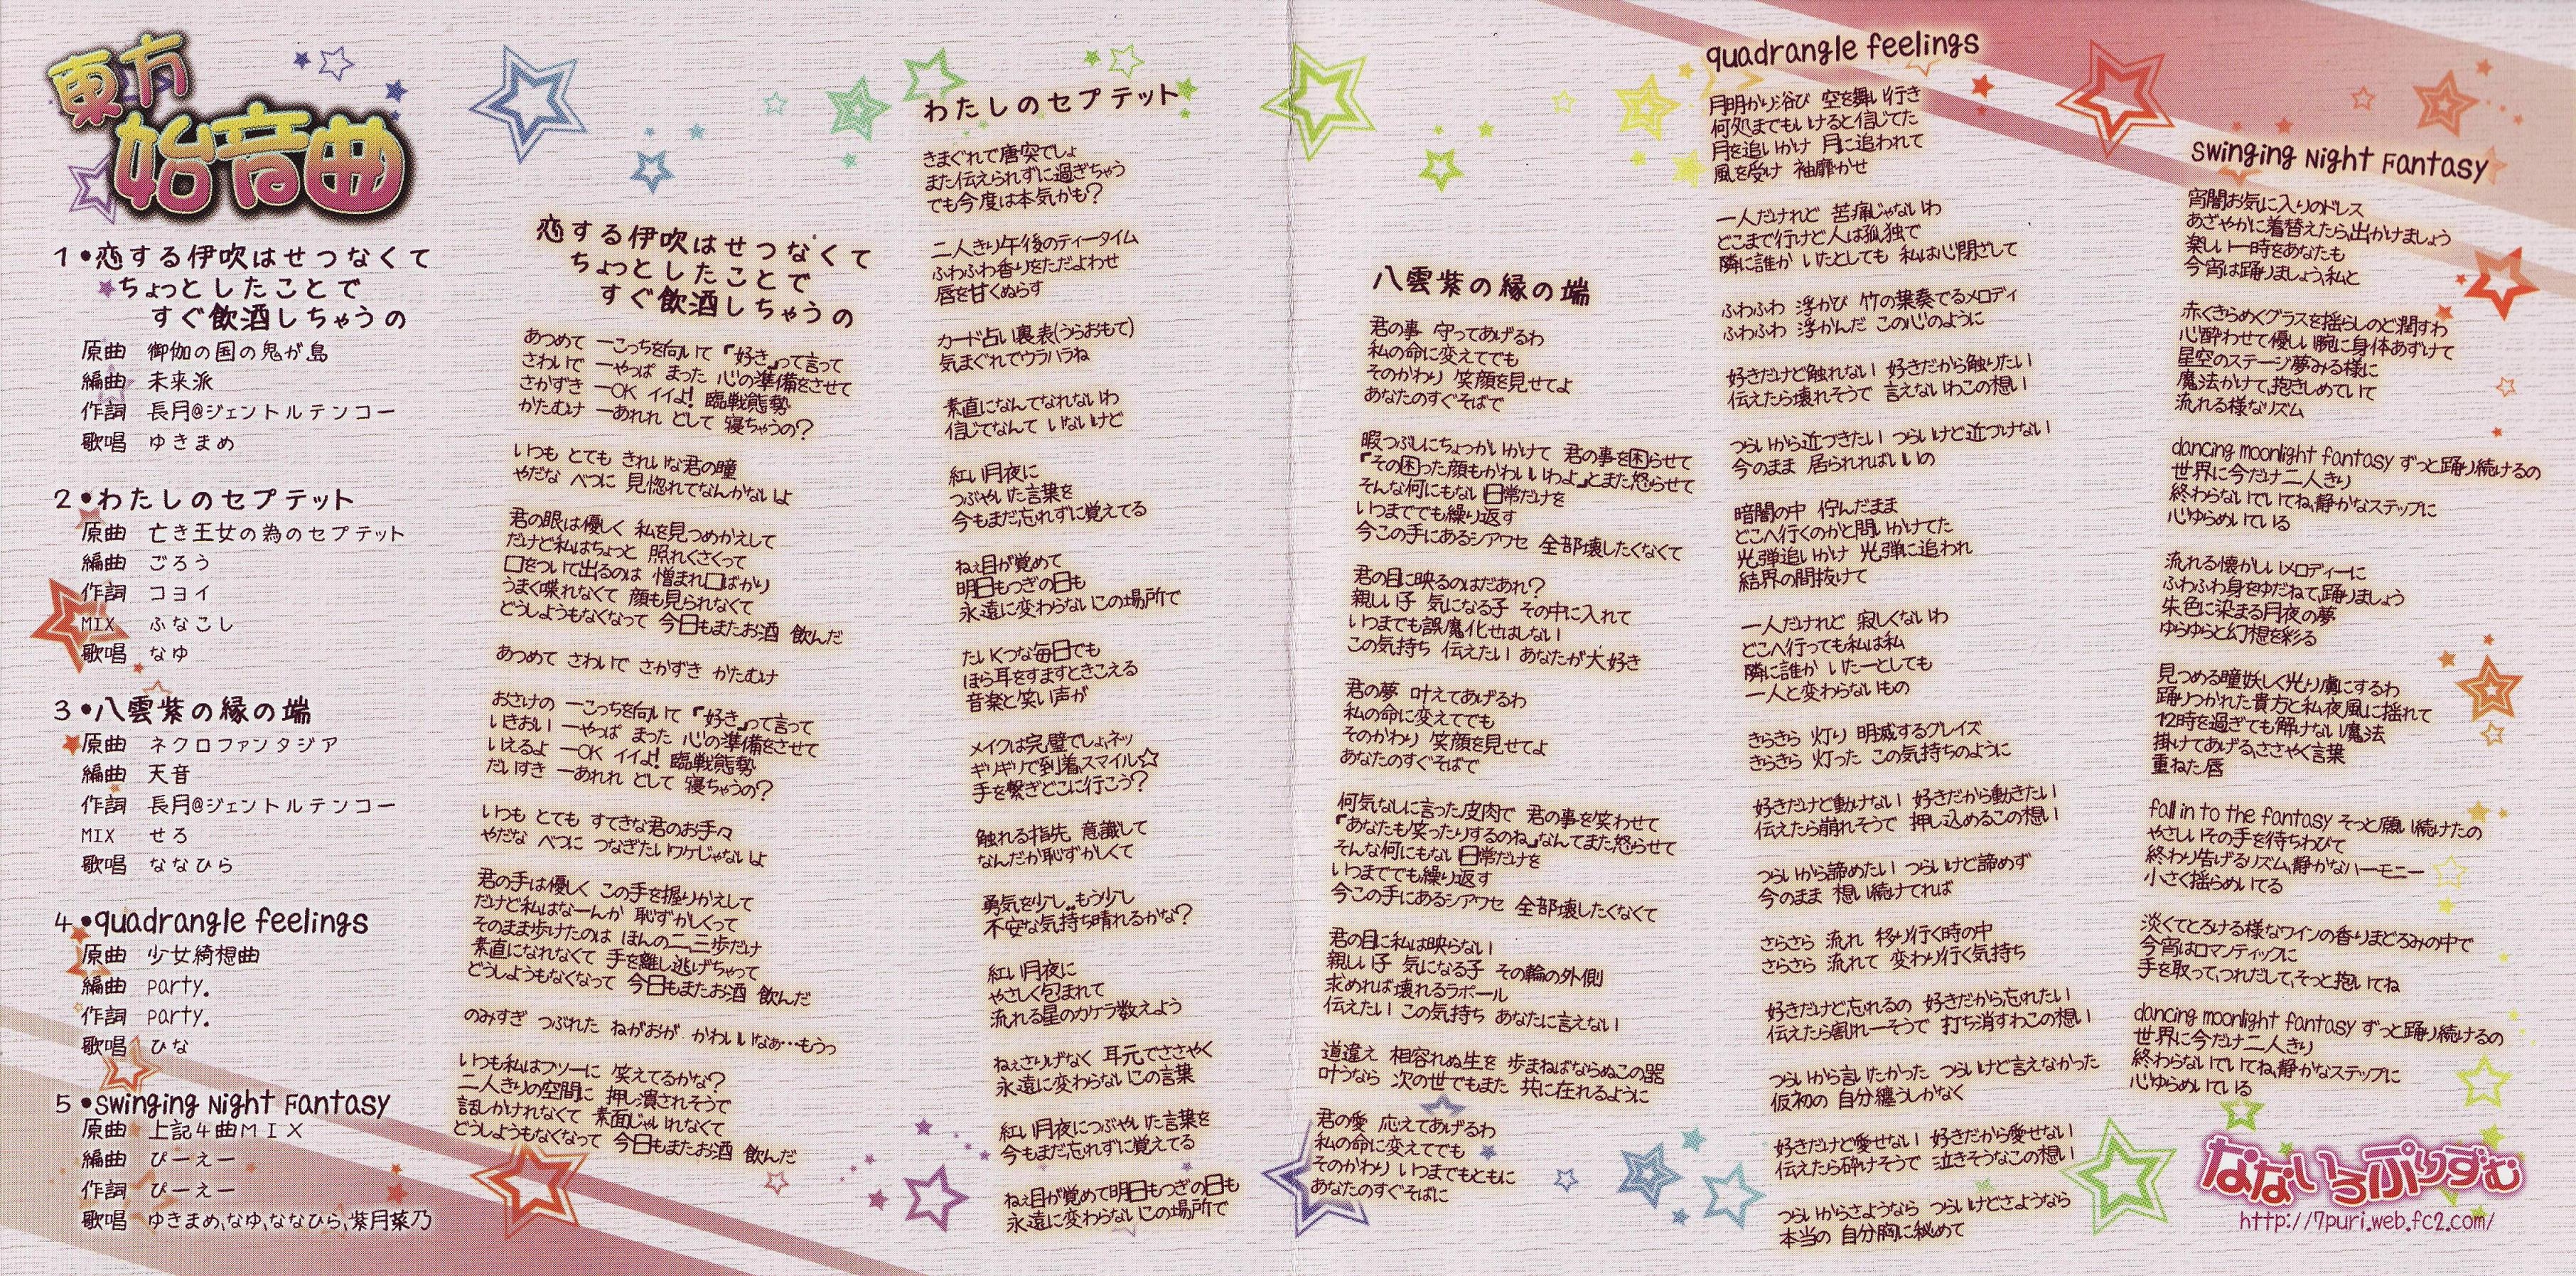 東方
始音曲
1・恋する伊吹はせつなくて
ちょっとしたことで
すぐ飲酒しちゃうの
原曲 御伽の国の鬼が島
編曲 未来派
作詞 長月@ジェントルテンコー
歌唱 ゆきまめ
2・わたしのセプテット
原曲 亡き王女の為のセプテット
編曲 ごろう
作詞 コヨイ
MIX ふなこし
歌唱 なゆ
3・八雲紫の縁の端
原曲 ネクロファンタジア
編曲 天音
作詞 長月@ジェントルテンコー
MIX せろ
歌唱 ななひら
4・quadrangle feelings
原曲 少女綺想曲
編曲 party.
作詞 party.
歌唱 ひな
5・Swinging Night Fantasy
原曲 上記4曲MIX
編曲 ぴーえー
作詞 ぴーえー
歌唱 ゆきまめ,なゆ,ななひら,紫月菜乃
恋する伊吹はせつなくて
ちょっとしたことで
すぐ飲酒しちゃうの
あつめて ーこっちを向いて『好き』って言って
さわいで ーやっぱ まった 心の準備をさせて
さかずき ーOK イイよ! 臨戦態勢
かたむけ ーあれれ どして 寝ちゃうの?
いつも とても きれいな君の瞳
やだな べつに 見惚れてなんかないよ
君の眼は優しく 私を見つめかえして
だけど私はちょっと 照れくさくって
口をついて出るのは 憎まれ口ばかり
うまく喋れなくて 顔も見られなくて
どうしようもなくなって 今日もまたお酒 飲んだ
あつめて さわいで さかずき かたむけ
おさけの ーこっちを向いて『好き』って言って
いきおい ーやっぱ まった 心の準備をさせて
いえるよ ーOK イイよ! 臨戦態勢
だいすき ーあれれ どして 寝ちゃうの?
いつも とても すてきな君のお手々
やだな べつに つなぎたいワケじゃないよ
君の手は優しく この手を握りかえして
だけど私はなーんか 恥ずかしくって
そのまま歩けたのは ほんの二,三歩だけ
素直になれなくて 手を離し逃げちゃって
どうしようもなくなって 今日もまたお酒 飲んだ
のみすぎ つぶれた ねがおが かわいいなぁ…もうっ
いつも私はフツーに 笑えてるかな?
二人きりの空間に 押し潰されそうで
話しかけれなくて 素面じゃいれなくて
どうしようもなくなって 今日もまたお酒 飲んだ
わたしのセプテット
きまぐれで唐突でしょ
また伝えられずに過ぎちゃう
でも今度は本気かも?
二人きり午後のティータイム
ふわふわ香りをただよわせ
唇を甘くぬらす
カード占い裏表(うらおもて)
気まぐれでウラハラね
素直になんてなれないわ
信じてなんて いないけど
紅い月夜に
つぶやいた言葉を
今もまだ忘れずに覚えてる
ねぇ目が覚めて
明日もつぎの日も
永遠に変わらないこの場所で
たいくつな毎日でも
ほら耳をすますときこえる
音楽と笑い声が
メイクは完璧でしょ,ネッ
ギリギリで到着,スマイル☆
手を繋ぎどこに行こう?
触れる指先, 意識して
なんだか恥ずかしくて
勇気を少し..もう少し
不安な気持ち晴れるかな?
紅い月夜に
やさしく包まれて
流れる星のカケラ数えよう
ねぇさりげなく 耳元でささやく
永遠に変わらないこの言葉
紅い月夜につぶやいた言葉を
今もまだ忘れずに覚えてる
ねぇ目が覚めて明日もつぎの日も
永遠に変わらないこの場所で
八雲紫の縁の端
君の事 守ってあげるわ
私の命に変えてでも
そのかわり 笑顔を見せてよ
あなたのすぐそばで
暇つぶしにちょっかいかけて 君の事を困らせて
『その困った顔もかわいいわよ』とまた怒らせて
そんな何にもない日常だけを
いつまででも繰り返す
今この手にあるシアワセ 全部壊したくなくて
君の目に映るのはだあれ?
親しい子 気になる子 その中に入れて
いつまでも誤魔化せはしない
この気持ち 伝えたい あなたが大好き
君の夢 叶えてあげるわ
私の命に変えてでも
そのかわり 笑顔を見せてよ
あなたのすぐそばで
何気なしに言った皮肉で 君の事を笑わせて
『あなたも笑ったりするのね』なんてまた怒らせて
そんな何にもない日常だけを
いつまででも繰り返す
今この手にあるシアワセ 全部壊したくなくて
君の目に私は映らない
親しい子 気になる子 その輪の外側
求めれば壊れるラポール
伝えたい この気持ち あなたに言えない
道違え 相容れぬ生を 歩まねばならぬこの器
叶うなら 次の世でもまた 共に在れるように
君の愛 応えてあげるわ
私の命に変えてでも
そのかわり いつまでもともに
あなたのすぐそばに
quadrangle feelings
月明かり浴び 空を舞い行き
何処までもいけると信じてた
月を追いかけ 月に追われて
風を受け 袖靡かせ
一人だけれど 苦痛じゃないわ
どこまで行けど人は孤独で
隣に誰か いたとしても 私は心閉ざして
ふわふわ 浮かび 竹の葉奏でるメロディ
ふわふわ 浮かんだ この心のように
好きだけど触れない 好きだから触りたい
伝えたら壊れそうで 言えないわこの想い
つらいから近づきたい つらいけど近づけない
今のまま 居られればいいの
暗闇の中 佇んだまま
どこへ行くのかと問いかけてた
光弾追いかけ 光弾に追われ
結界の間抜けて
一人だけれど 寂しくないわ
どこへ行っても私は私
隣に誰か いたーとしても
一人と変わらないもの
きらきら 灯り 明滅するグレイズ
きらきら 灯った この気持ちのように
好きだけど動けない 好きだから動きたい
伝えたら崩れそうで 押し込めるこの想い
つらいから諦めたい つらいけど諦めず
今のまま 想い続けてれば
さらさら 流れ 移り行く時の中
さらさら 流れて 変わり行く気持ち
好きだけど忘れるの 好きだから忘れたい
伝えたら割れーそうで 打ち消すわこの想い
つらいから言いたかった つらいけど言えなかった
仮初の 自分纏うしかなく
好きだけど愛せない 好きだから愛せない
伝えたら砕けそうで 泣きそうなこの想い
つらいからさようなら つらいけどさようなら
本当の 自分胸に秘めて
Swinging Night Fantasy
宵闇お気に入りのドレス
あざやかに着替えたら,出かけましょう
楽しい一時をあなたも
今宵は踊りましょう,私と
赤くきらめくグラスを揺らしのど潤すわ
心酔わせて優しい腕に身体あずけて
星空のステージ夢みる様に
魔法かけて,抱きしめていて
流れる様なリズム
dancing moonlight fantasy ずっと踊り続けるの
世界に今だけ二人きり
終わらないでいてね,静かなステップに
心ゆらめいている
流れる懐かしいメロディーに
ふわふわ身をゆだねて,踊りましょう
朱色に染まる月夜の夢
ゆらゆらと幻想を彩る
見つめる瞳妖しく光り虜にするわ
踊りつかれた貴方と私夜風に揺れて
12時を過ぎても解けない魔法
掛けてあげる,ささやく言葉
重ねた唇
fall in to the fantasy そっと願い続けたの
やさしいその手を待ちわびて
終わり告げるリズム,静かなハーモニー
小さく揺らめいてる
淡くてとろける様なワインの香りまどろみの中で
今宵はロマンティックに
手を取って,つれだして,そっと抱いてね
dancing moonlight fantasy ずっと踊り続けるの
世界に今だけ二人きり
終わらないでいてね,静かなステップに
心ゆらめいている
なないろぷりずむ
http://7puri.web.fc2.com/